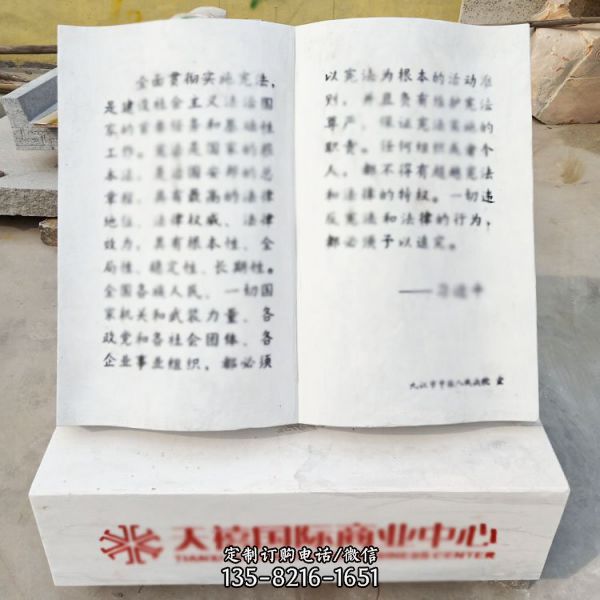 全面贯彻实施宪法，
是建设社会主义法治国
家的首要任务和基础性
工作。宪法是国家的根
本法，是治国安邦的总
章程，具有最高的法律
地位、法律权威、法律
效力，具有根本性、全
局性、稳定性、长期性。
全国各族人民、一切国
家机关和武装力量、各
政党和各社会团体、各
企业事业组织，都必须
以宪法为根本的活动准
则，并且负有维护宪法
尊严、保证宪法实施的
职责。任何组织或者个
人，都不得有超越宪法
和法律的特权。一切违
反宪法和法律的行为，
都必须予以追究。
人民法院 宣
国际商业中心
BUSINESS CENTER
定制订购电话/微信
135-8216-1651